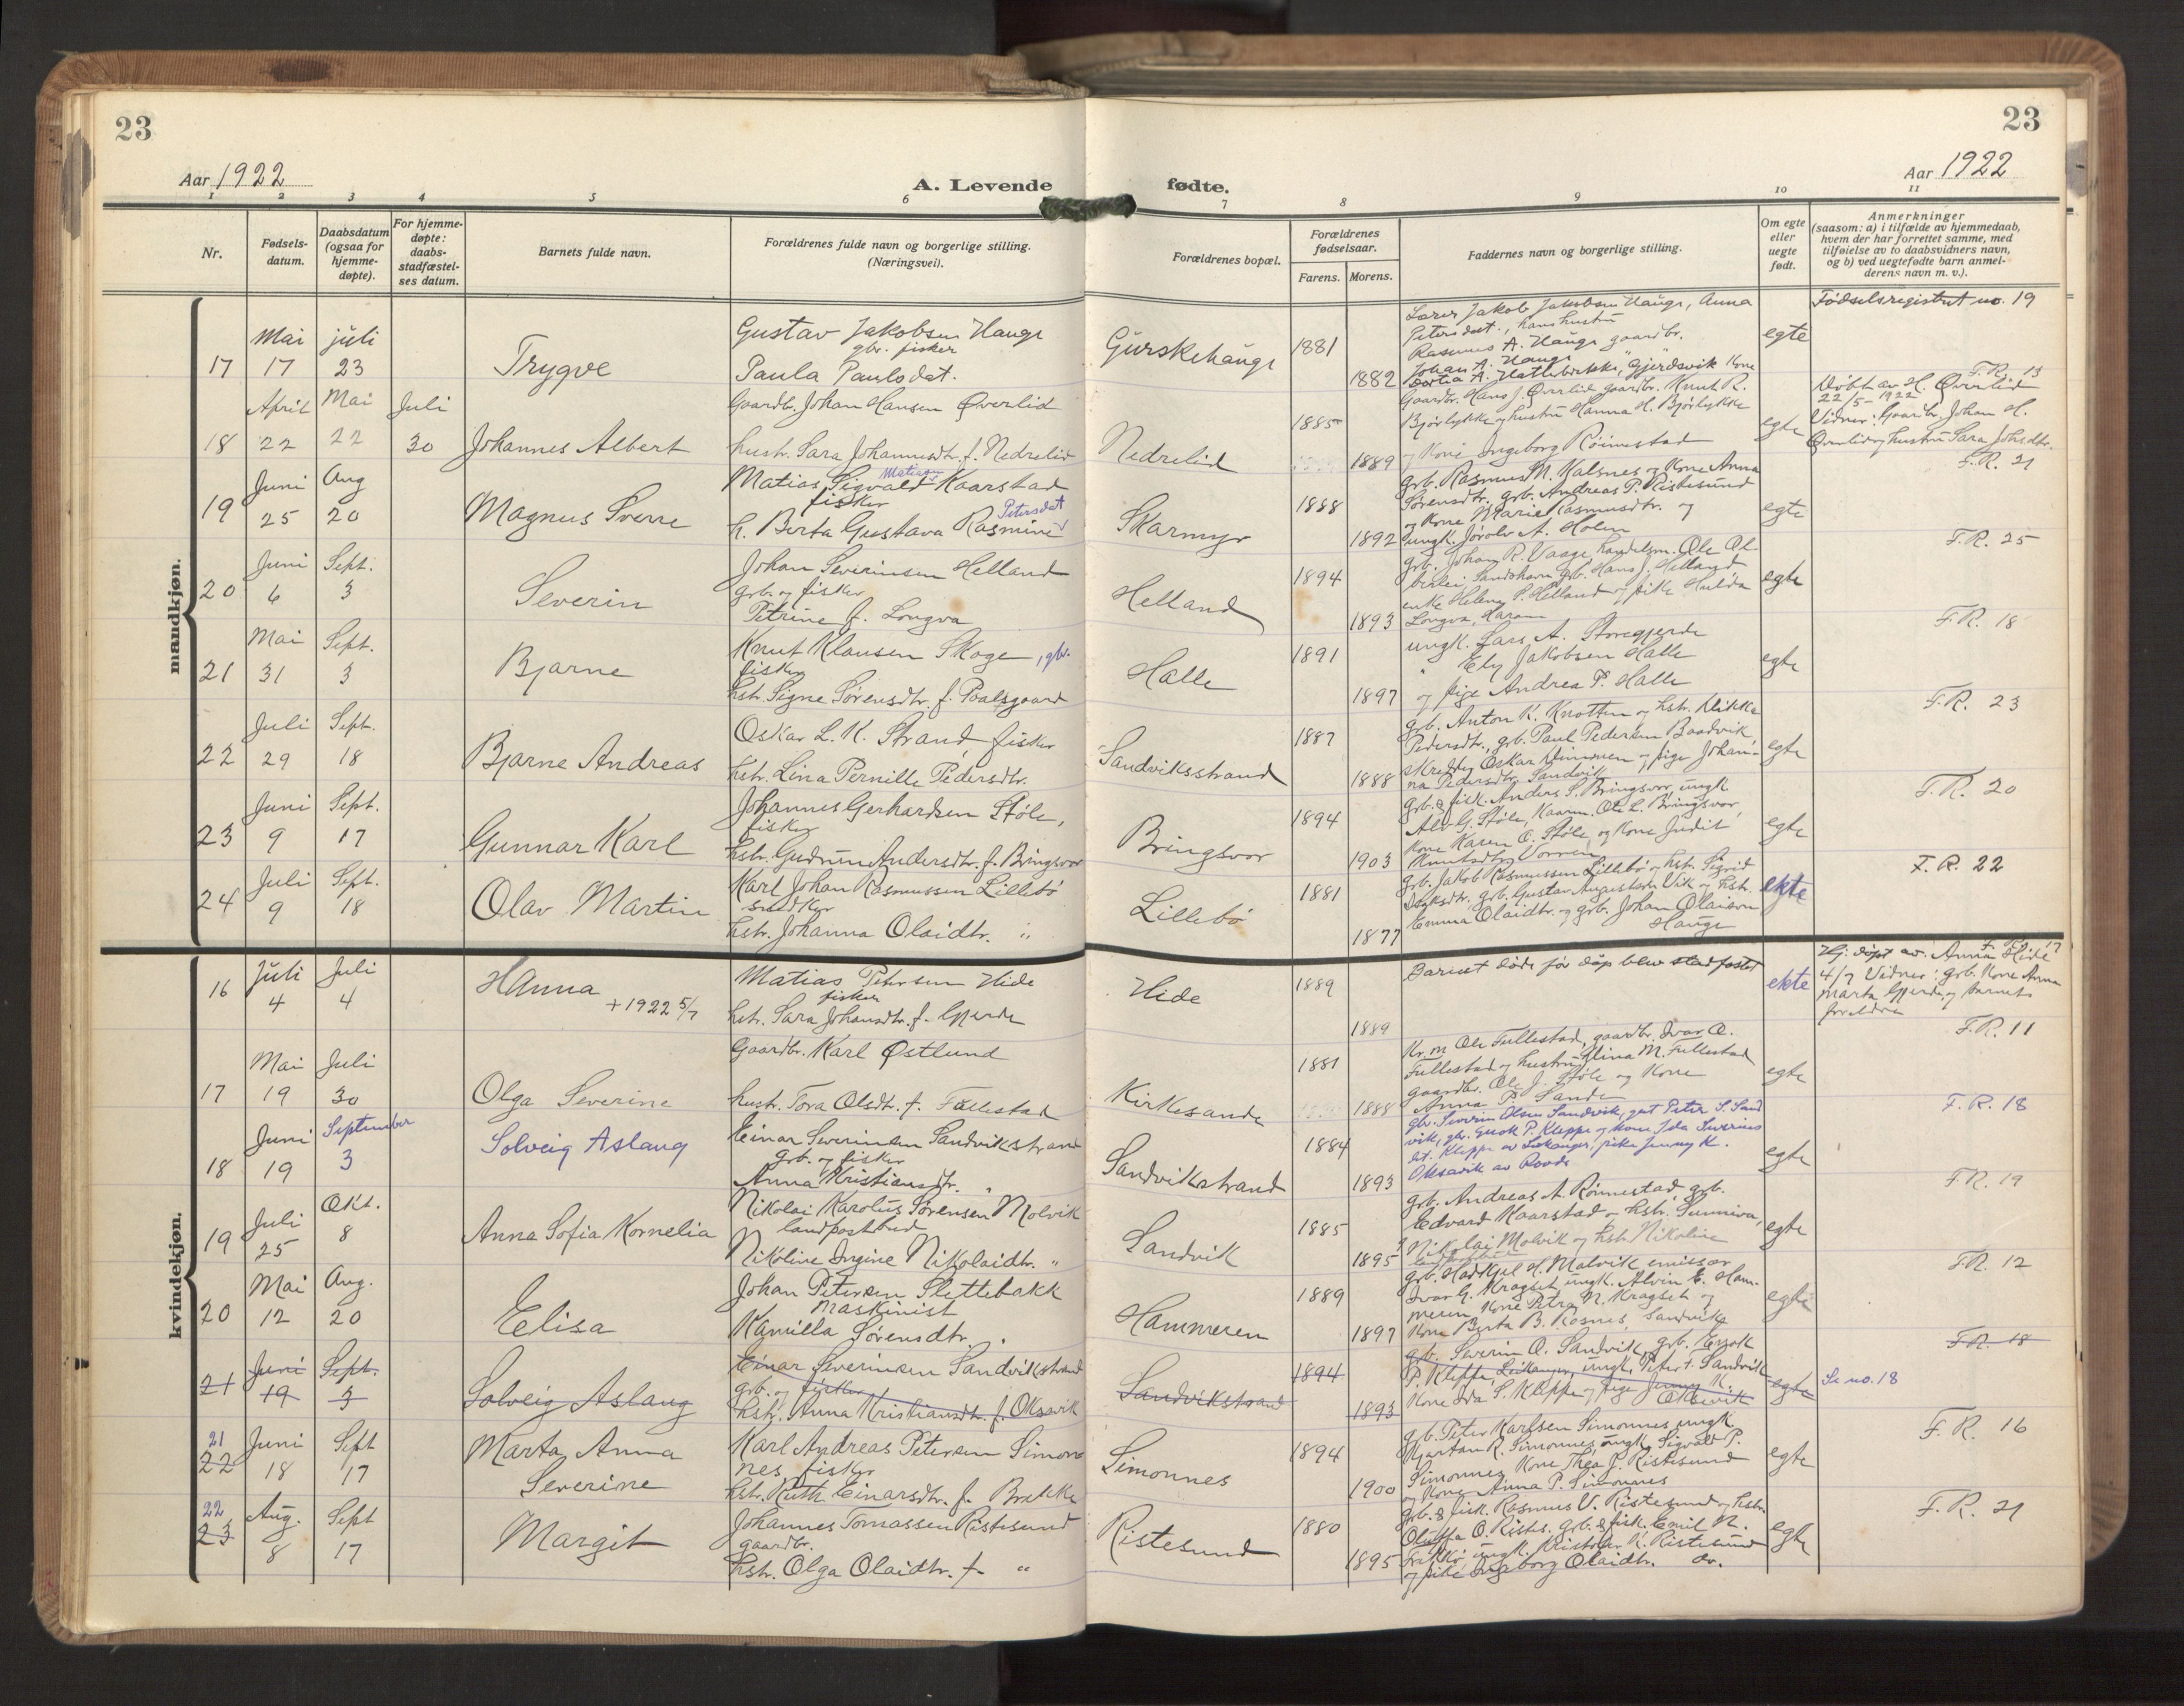 23
23
Aar 1922
A. Levende
fødte.
Aar 1922
1 2 3 4 5 6 7 8 9 10 11
Nr.
Fødsels-
datum.
Daabsdatum
(ogsaa for
hjemme-
døpte).
For hjemme-
døpte:
daabs-
stadfæstel-
ses datum.
Barnets fulde navn.
Forældrenes fulde navn og borgerlige stilling.
(Næringsvei).
Forældrenes bopæl.
Forældrenes
fødselsaar.
Farens. Morens.
Faddernes navn og borgerlige stilling.
Om egte
eller
uegte
født.
Anmerkninger
(saasom: a) i tilfælde av hjemmedaab,
hvem der har forrettet samme, med
tilføielse av to daabsvidners navn,
og b) ved uegtefødte barn anmel-
derens navn m. v.).
mandkjøn.
17
Mai
17
juli
23
Trygve
Gustav Jakobsen Hauge
gbr. fisker
Paula Paulsdat.
Gurskehauge
1881
1882
Lærer Jakob Jakobsen Hauge, Anna
Petersdat., hans hustru
Rasmus A. Hauge gaardbr.
Johan A. Hauge
egte
Fødselsregistret no. 19
18
April
22
Mai
22
Juli
30
Johannes Albert
Gaardbr. Johan Hansen Øverlid
hustr. Sara Johannesdtr. f. Nedrelid
Nedrelid
1885
1889
Gaardbr. Hans J. Øverlid gaardbr. Knut R.
Bjørlykke og hustru Hanna H. Bjørlykke
og Kone Ingeborg Røinestad
egte
F.R. 13
Døbt av H. Øverlid
22/5- 1922
Vidner: Gaardbr. Johan H.
Øverlid og hustru Sara Johsdtr.
19
Juni
25
Aug
20
Magnus Sverre
Matias Sigvald Matiasen Kaarstad
fisker
h. Berta Gustava Rasmine Petersdat
Skarmyr
1888
1892
grb. Rasmus M. Kalsnes og Kone Anna
Sørensdtr. grb. Andreas P. Ristesund
og Kone Marie Rasmusdtr. og
ungk. A. Holm
egte
F.R. 21
20
Juni
6
Sept.
3
Severin
Johan Severinsen Helland
grb. og fisker
Petrine f. Longva
Helland
1894
1893
grb. Johan R. Vaage, handelsm. Ole
Sandshavn grb. Hans J. Helland
enke Helene P. Helland og pike Hulda
Longva, Haram
egte
F.R. 25
21
Mai
31
Sept.
3
Bjarne
Knut Klausen Skoge, gbr.
fisker
hstr. Signe Sørensdtr. f. Poalsgaard
Halle
1891
1897
ungk. Lars A. Storegjerde
" Ely Jakobsen Halle
og pige Andrea P. Halle
egte
F.R. 18
22
Juli
29
Sept.
18
Bjarne Andreas
Oskar L. K. Strand, fisker
hstr. Lina Pernille Pedersdtr.
Sandviksstrand
1887
1888
grb. Anton K. Knotten og hstr. Rikka
Pedersdtr., grb. Paul Pedersen Baadvik,
skredder Oskar og pige Johan-
na Pedersdtr. Sandvik
egte
F.R. 23
23
Juni
9
Sept.
17
Gunnar Karl
Johannes Gerhardsen Støle,
fisker
hstr. Gudrun Andersdtr. f. Bringsvor
Bringsvor
1894
1903
grb. & fisk. Anders S. Bringsvor, ungk
Alv G. Støle, Ole L. Bringsvor,
Kone Karen O. Støle, og Kone Judit
Knutsdtr. Vorren
egte
F.R. 20
24
Juli
9
Sept.
18
Olav Martin
Karl Johan Rasmussen Lillebø
snedker
hstr. Johanna Olaidtr. "
Lillebø
1881
1877
grb. Jakob Rasmussen Lillebø og hstr. Sigrid
grb. Gustav Augustsen Vik og hstr.
Emma Olaidtr. og grb. Johan Olaisen
Hauge
ekte
F.R. 22
kvindekjøn.
16
Juli
4
Juli
4
Hanna
+ 1922 5/7
Matias Petersen Hide
fisker
hstr. Sara Johansdtr. f. Gjerde
Hide
1889
1889
Barnet døde før dåp blev stadfæstet
ekte
F.R. 17
Hj: døpt av Anna Hide
4/7 Vidner: grb. Kone Anna
Marta Gjerde, og barnets
foreldre
17
Mai
19
Juli
30
Olga Severine
Gaardbr. Karl Østlund
hustr. Tora Olsdtr. f. Fullestad
Kirkesande
1881
1888
Kr.m Ole Fullestad, gaardbr. Ivar O.
Fullestad og hustru Elina M. Fullestad
gaardbr. Ole J. Støle og Kone
Anna P. Sande
egte
F.R. 11
18
Juni
19
September
3
Solveig Aslaug
Einar Severinsen Sandvikstrand
grb. og fisker
Anna Kristiansdtr. "
Sandvikstrand
1884
1893
gbr. Severin Olsen Sandvik, gut Peter S. Sand
vik, gbr. Enok P. Kleppe og kone Ida Severins
dt. Kleppe av Leikanger, pike Jenny K.
Oksavik av Rovde
egte
F.R. 18
19
Juli
25
Okt.
8
Anna Sofia Kornelia
Nikolai Karolus Sørensen Molvik
landpostbud
Nikoline Ingine Nikolaidtr. "
Sandvik
1885
1895
grb. Andreas A. Rønnestad, grb.
Edvard Kaarstad og hstr. Sunniva,
Nikolai Molvik og hstr Nikoline
egte
F.R. 19
20
Mai
12
Aug.
20
Elisa
Johan Petersen Slettebakk
Maskinist
Kamilla Sørensdtr.
Hammeren
1889
1897
grb. Hadkjel H. Molvik emissær
Ivar G. Kragset ungk. Alvin E. Ham-
meren Kone Petra N. Kragseth og
Kone Berta B. Kosnes, Sandvik
egte
F.R. 12
21
Juni
19
Sept.
3
Solveig Aslaug
Einar Severinsen Sandvikstrand
grb. og fisker
hstr. Anna Kristiansdtr. f. Oksavik
Sandvikstrand
1894
1893
grb. Severin O. Sandvik, grb. Enok
P. Kleppe, Leikanger, ungk. Peter S. Sandvik
Kone Ida S. Kleppe og pige Jenny K.
Oksevik
egte
F.R. 18
Se no. 18
21
22
Juni
18
Sept
17
Marta Anna
Severine
Karl Andreas Petersen Simon
nes, fisker
hstr. Ruth Einarsdtr. f. Brekke
Simonnes
1894
1900
grb. Peter Karlsen Simonnes ungk.
Kjartan R. Simonnes, ungk. Sigvald P.
Simonnes, Kone Thea J. Ristesund
og Kone Anna P. Simonnes
egte
F.R. 16
22
23
Aug.
8
Sept
17
Margit
Johannes Tomassen Ristesund
gaardbr.
hstr. Olga Olaidtr. f. "
Ristesund
1880
1895
grb. & fisk. Rasmus V. Ristesund og hstr.
Oluffa O. Ristes. grb. & fisk. Emil N.
ungk. Kristofer K. Ristesund
og pike Ingeborg Olaidtr. do.
egte
F.R. 21